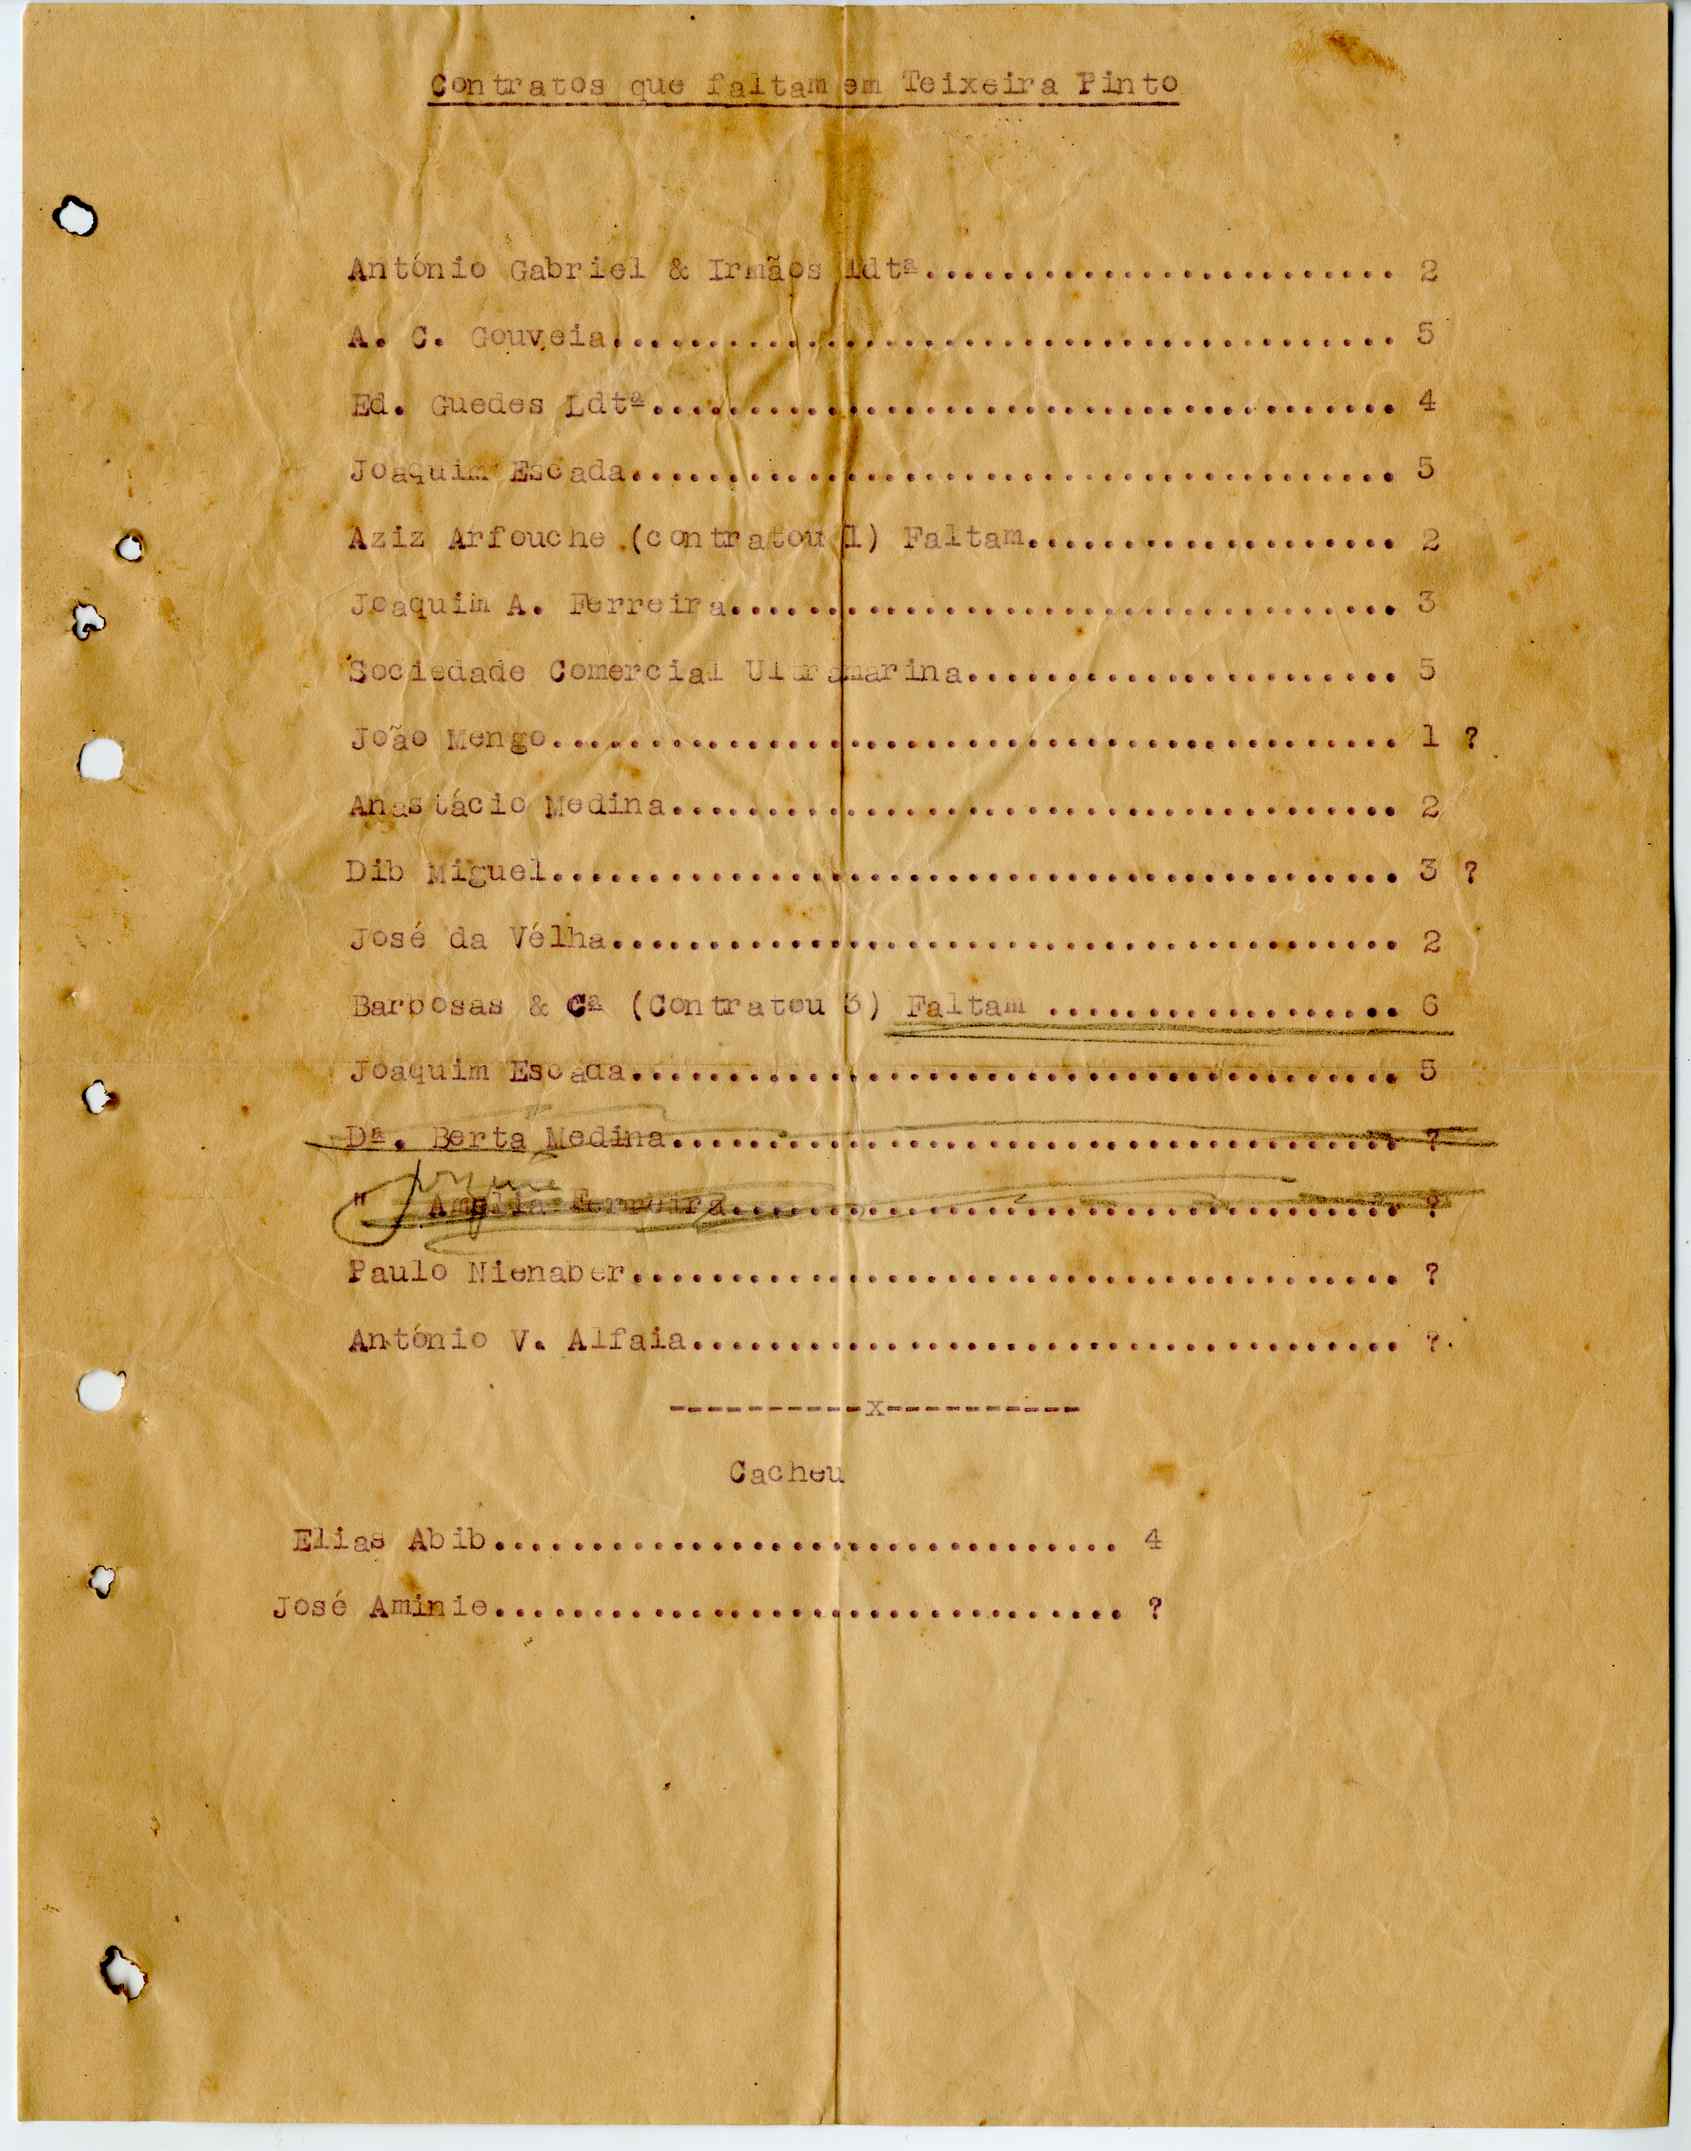 Contratos que faltam em Teixeira Pinto
António Gabriel & Irmãos Ldtª........................ 2
A. C. Gouveia........................................ 5
Ed. Guedes Ldtª...................................... 4
Joaquim Escada....................................... 5
Aziz Arfouche (contratou 1) Faltam................... 2
Joaquim A. Ferreira.................................. 3
Sociedade Comercial Ultramarina...................... 5
João Mengo........................................... 1 ?
Anastácio Medina..................................... 2
Dib Miguel........................................... 3 ?
José da Vélha........................................ 2
Barbosas & Cª (Contratou 3) Faltam .................. 6
Joaquim Escada....................................... 5
Dª. Berta Medina..................................... ?
" Amelia Ferreira.................................. ?
Paulo Nienaber....................................... ?
António V. Alfaia.................................... ?.
----------x----------
Cacheu
Elias Abib................................ 4
José Aminie................................ ?